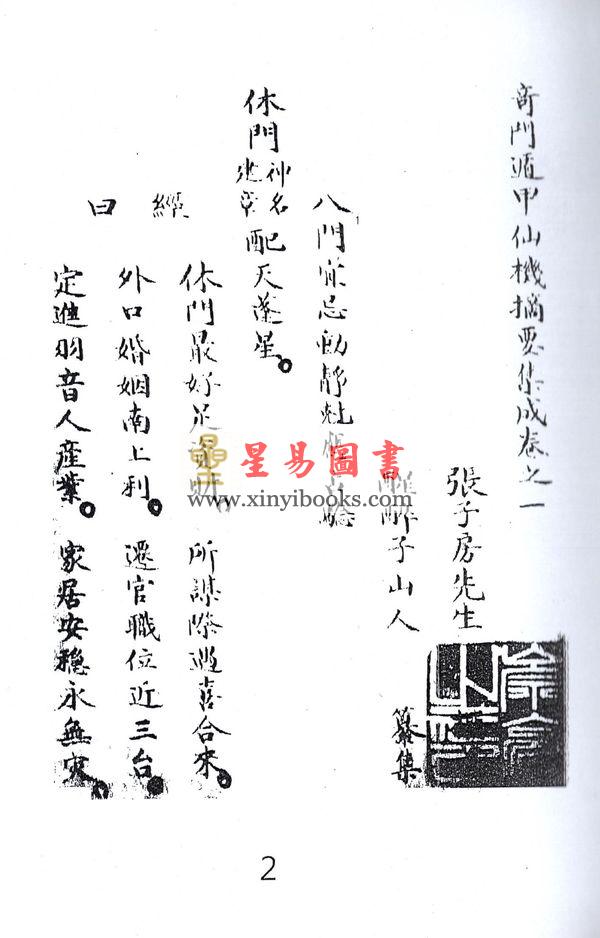 竒門遁甲仙機摘要集成卷之一
張子房先生
醉子山人 纂集
八門宜忌動靜
休門神名配天蓬星。
經曰
休門最好足 所謀際遇喜合來。
外口婚姻南上利。 遷官職位近三台。
定進羽音人產業。 家居安穩永無灾。
星易圖書
www.xinyibooks.com
2